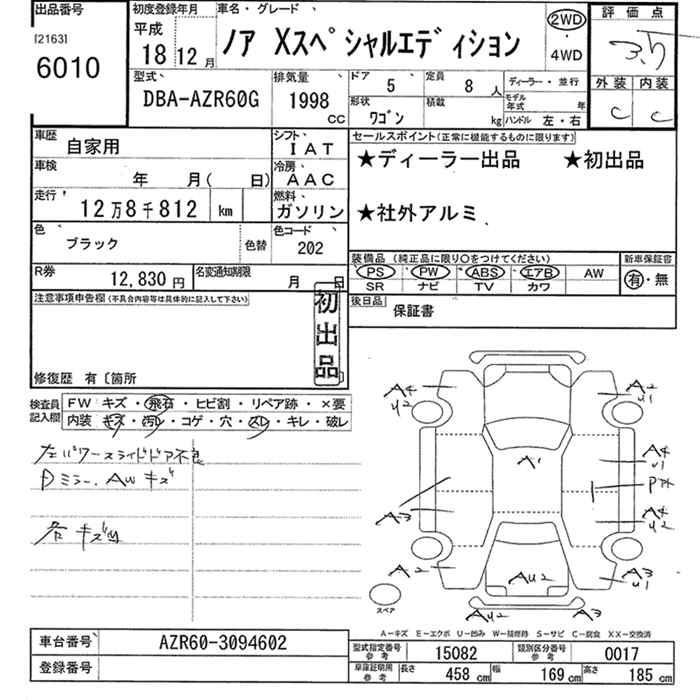 出品番号
[2163]
6010
初度登録年月
平成
18 12 月
車名・グレード
ノア Xスペシャルエディション
2WD
・
4WD
評価点
3.5
外装 内装
C C
型式
DBA-AZR60G
排気量
1998
CC
ドア
5
定員
8 人
形状
ワゴン
積載
kg
ディーラー・並行
モデル年式 年
ハンドル 左・右
車歴
自家用
シフト
IAT
車検
年 月( 日)
冷房
AAC
走行
12万8千812 km
燃料
ガソリン
色
ブラック
色替
色コード
202
R券
12,830 円
名変通知期限
月 日
セールスポイント(正常に機能するものに限ります)
★ディーラー出品 ★初出品
★社外アルミ
装備品 (純正品に限り○をつけてください)
PS PW ABS エアB AW
SR ナビ TV カワ
新車保証書
有・無
後日品
保証書
注意事項申告欄(不具合内容等は具体的に記入して下さい)
初出品
修復歴 有〔箇所
検査員記入欄
FW キズ・飛石・ヒビ割・リペア跡・×要
内装 キズ・汚レ・コゲ・穴・スレ・キレ・破レ
左パワースライドドア不良
Dミラー、AWキズ
各キズ凹
A4
U2
A2
U1
A1
A4
U1
Pアト
A3
A4
U2
A2
AU2
A3
U1
AU2
A3
スペア
A-キズ E-エクボ U-凹み W-補修跡 S-サビ C-腐食 XX-交換済
車台番号
AZR60-3094602
登録番号
型式指定番号
参考
15082
類別区分番号
参考
0017
車庫証明用
参考
長さ
458 cm
幅
169 cm
高さ
185 cm